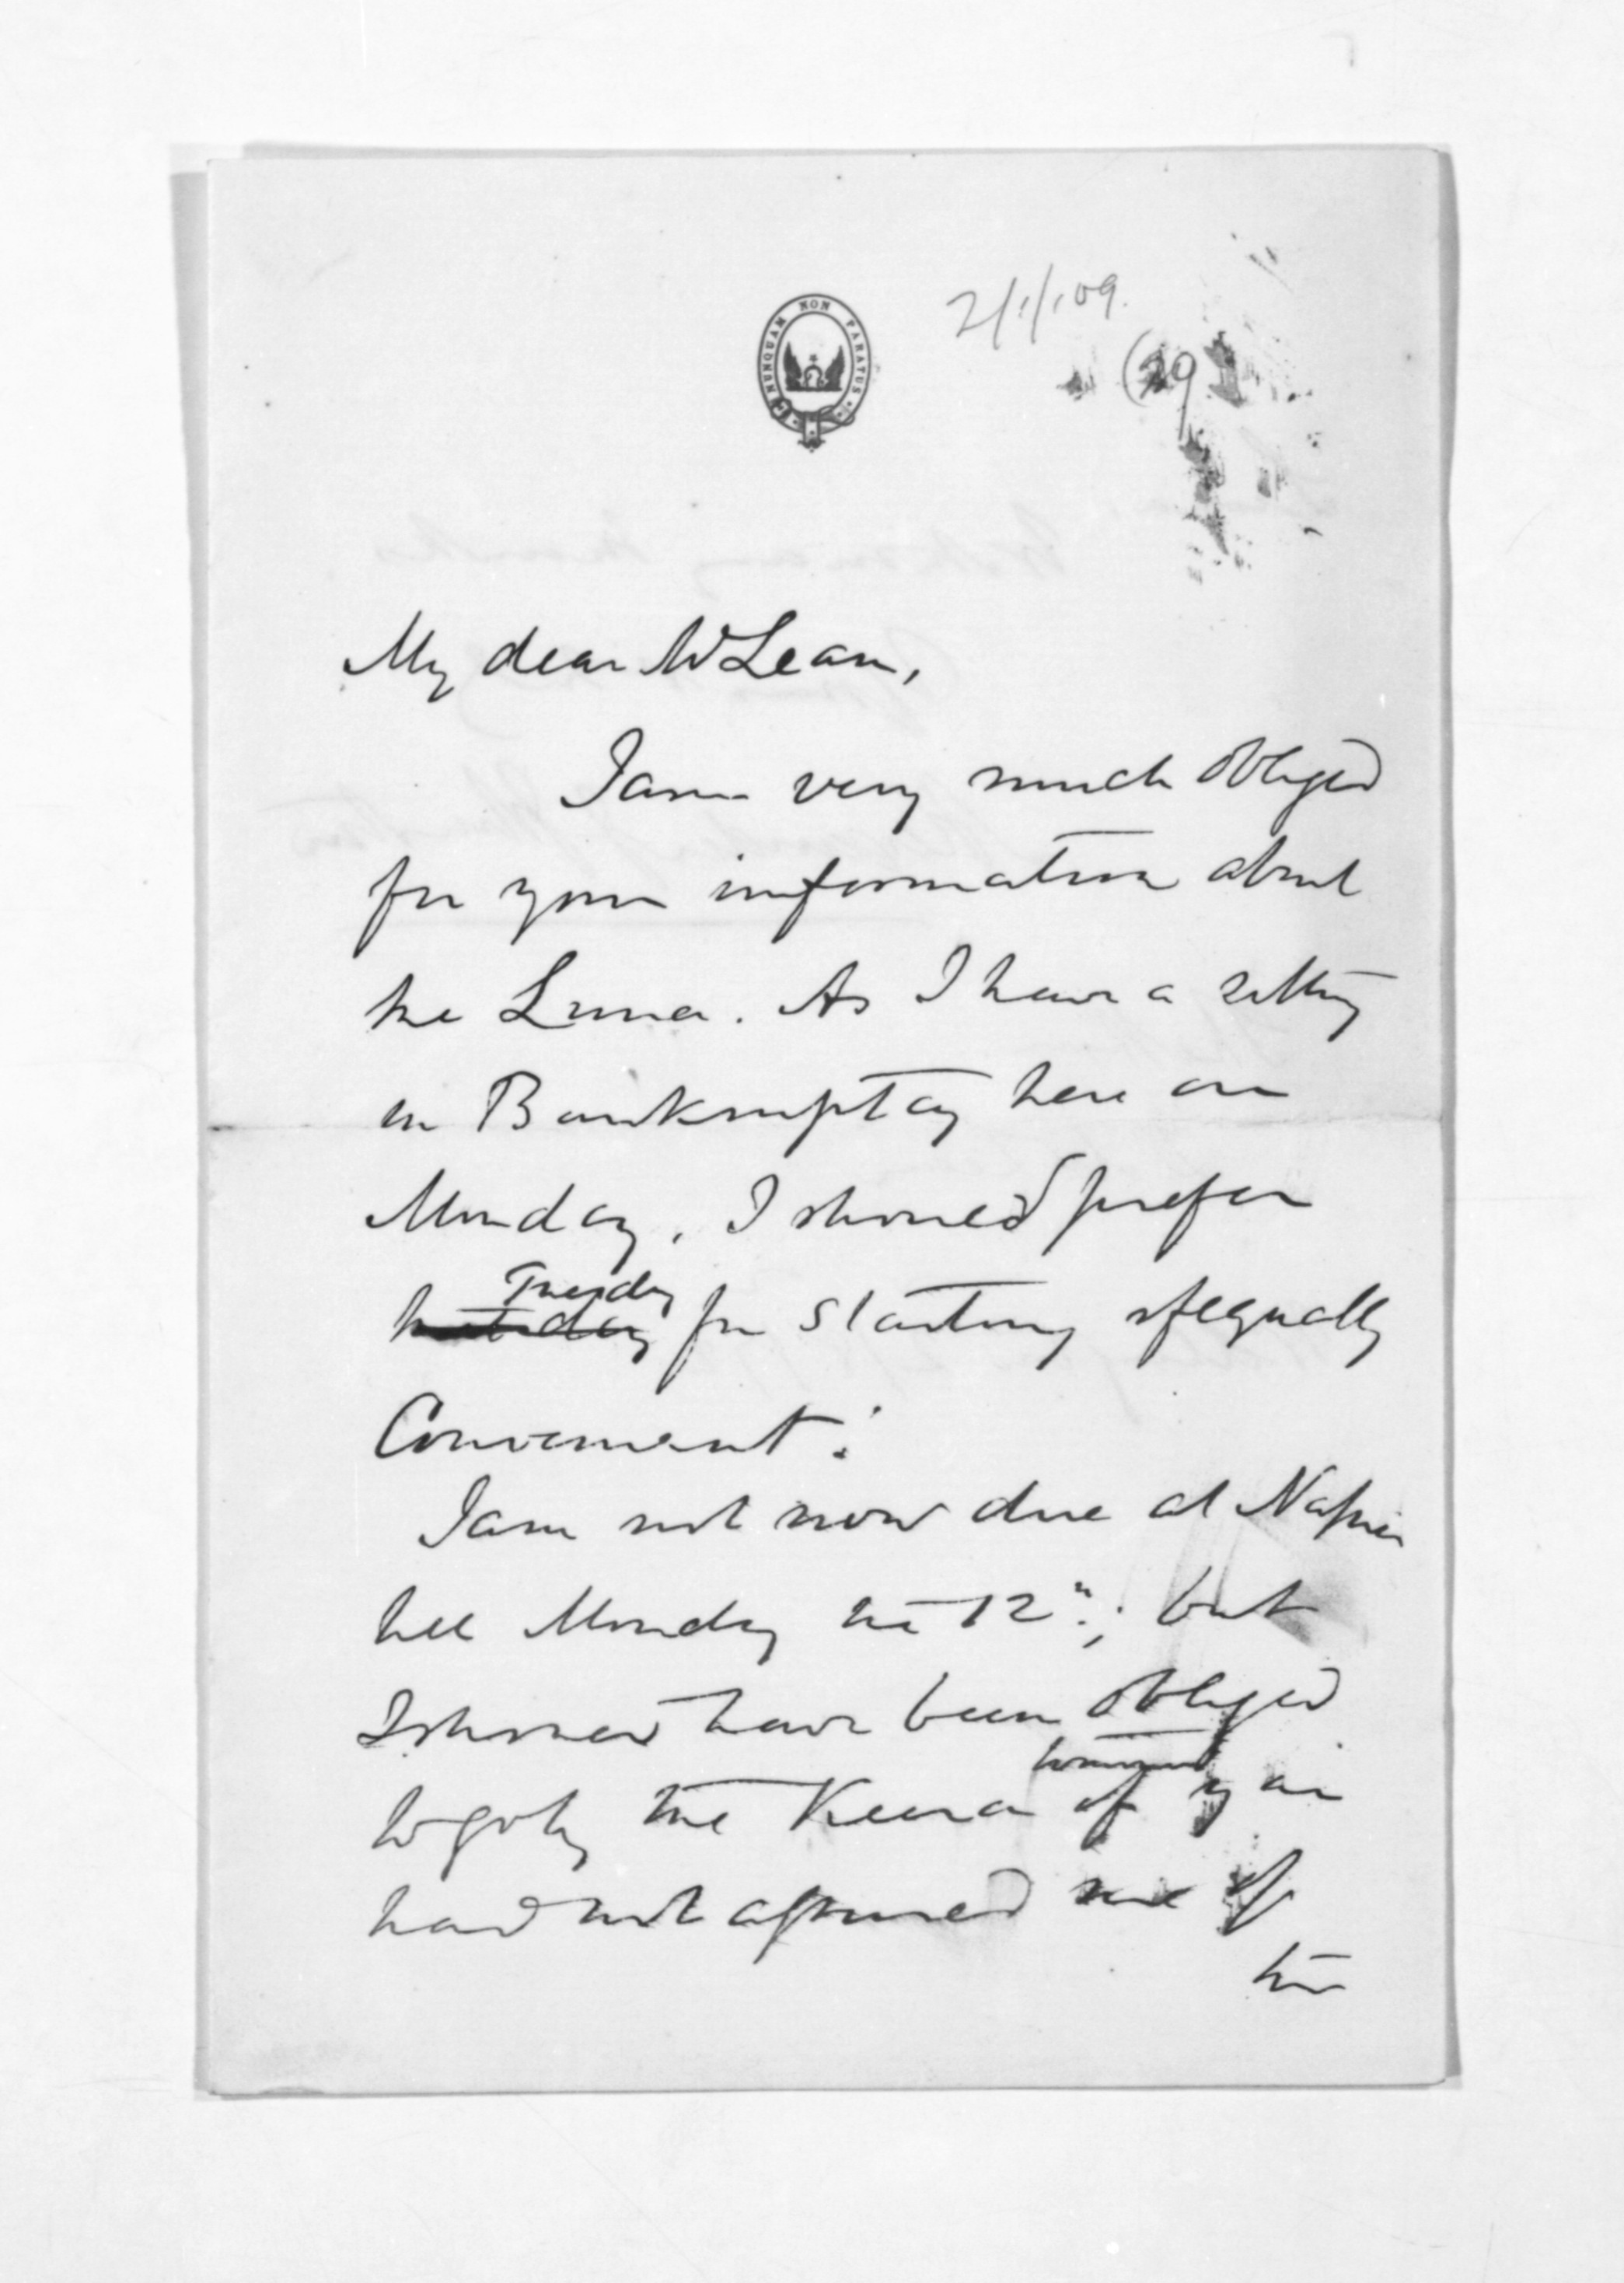 NUNQUAM NON PARATUS
2/1/109.
My dear McLean,
I am very much obliged
for your information about
the Luna. As I have a sitting
in Bankruptcy here on
Monday, I should prefer
Tuesday
for starting if equally
Convenient.
I am not now due at Napier
till Monday the 12th; but
I should have been obliged
to go by the Keera if you
had not apprised me of
the